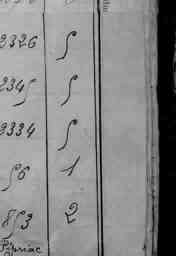 2326 5
2345 5
2334 5
56 1
853 2